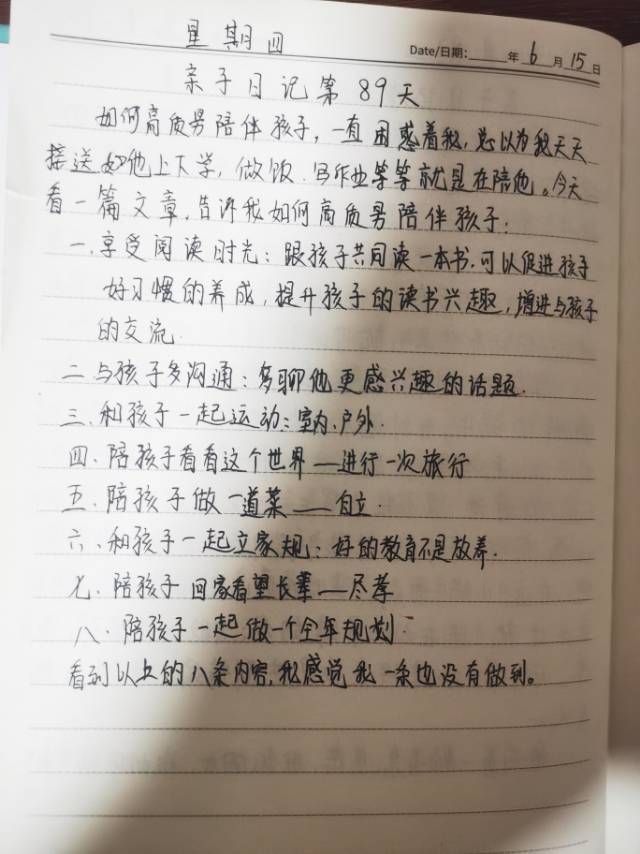 星期四
Date/日期: 年 6 月 15 日
亲子日记第89天
如何高质男陪伴孩子，一直困惑着我，总以为我天天
接送如他上下学，做饭、写作业等等就是在陪他。今天
看一篇文章，告诉我如何高质男陪伴孩子：
一、享受阅读时光：跟孩子共同读一本书.可以促进孩子
好习惯的养成，提升孩子的读书兴趣，增进与孩子
的交流.
二与孩子多沟通：多聊他更感兴趣的话题.
三、和孩子一起运动：室内、户外.
四、陪孩子看看这个世界——进行一次旅行
五、陪孩子做一道菜——自立.
六、和孩子一起立家规：好的教育不是放养.
七、陪孩子回家看望长辈——尽孝
八、陪孩子一起做一个全年规划.
看到以上的八条内容,我感觉我一条也没有做到。